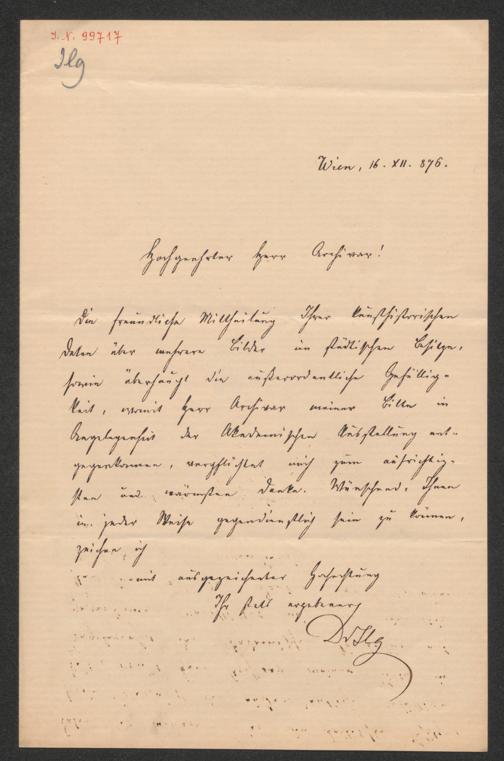 I.N. 99717
Ilg
Wien, 16. XII. 876.
Hochgeehrter Herr Archivar!
Die freundliche Mittheilung Ihrer kunsthistorischen
Daten über mehrere Bilder im städtischen Besitze,
sowie überhaupt die außerordentliche Gefällig-
keit, womit Herr Archivar meiner Bitte in
Angelegenheit der Akademischen Ausstellung ent-
gegenkommen, verpflichtet mich zum aufrichtig-
sten und wärmsten Danke. Wünschend, Ihnen
in jeder Weise gegendienstlich sein zu können,
zeichne ich
mit ausgezeichneter Hochachtung
Ihr stets ergebener
Dr Ilg